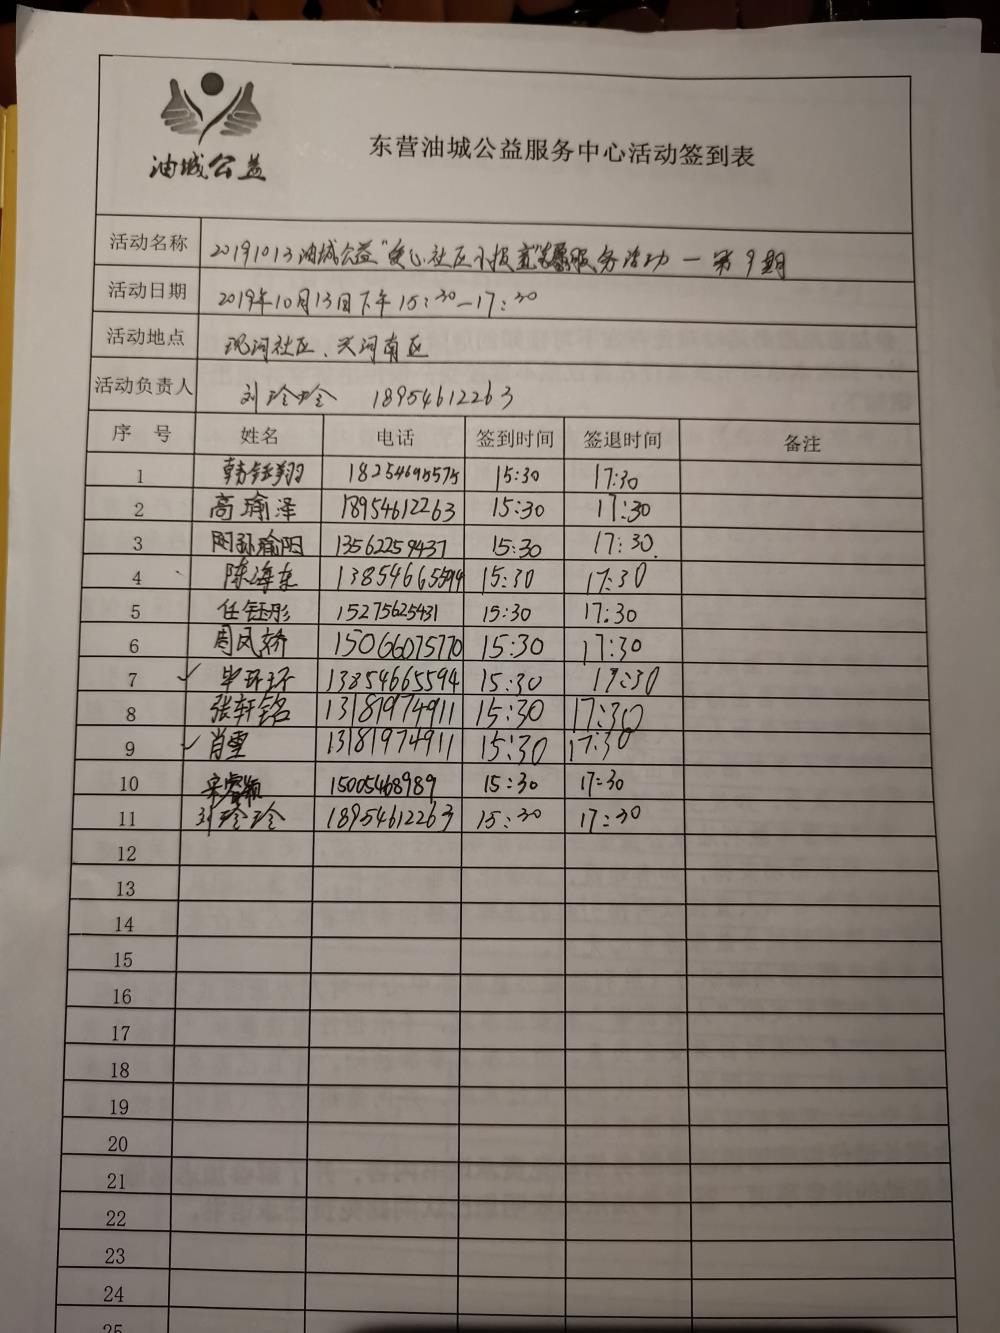 油城公益
东营油城公益服务中心活动签到表
活动名称 20191013油城公益"爱心社区小报童"志愿服务活动一第9期
活动日期 2019年10月13日下午15:30—17:30
活动地点 现河社区、兴河南区
活动负责人 刘玲玲 18954612263
序 号 姓名 电话 签到时间 签退时间 备注
1 韩钰翔 18254695575 15:30 17:30
2 高瑜泽 18954612263 15:30 17:30
3 周孙瑜阳 13562259437 15:30 17:30
4 陈海东 13854665594 15:30 17:30
5 任钰彤 15275625431 15:30 17:30
6 周凤娇 15066075770 15:30 17:30
7 ✓ 毕环环 13854665594 15:30 17:30
8 张轩铭 13181974911 15:30 17:30
9 ✓ 肖雪 13181974911 15:30 17:30
10 宋睿颖 15005468989 15:30 17:30
11 刘玲玲 18954612263 15:30 17:30
12
13
14
15
16
17
18
19
20
21
22
23
24
25